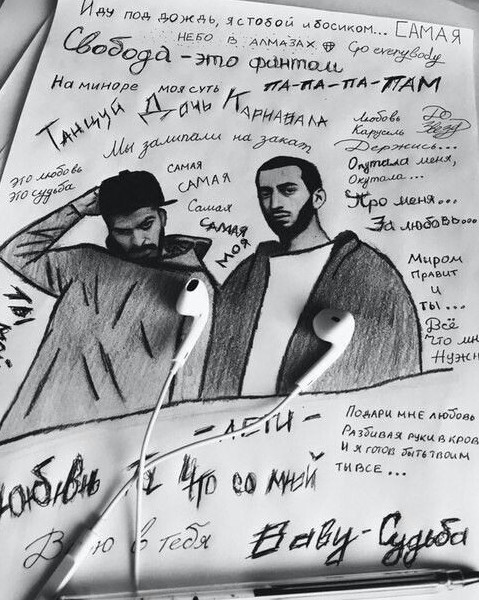 Иду под дождь, я с тобой и босиком... САМАЯ
НЕБО В АЛМАЗАХ Go everybody
Свобода - это фантом
На миноре моя суть ПА-ПА-ПА-ПАМ
Танцуй Дочь Карнавала
Мы залипали на закат
Любовь До
Карусель Звёзд
Держись...
Окутала меня,
Окутала...
Про меня...
За любовь...
это любовь
это судьба
САМАЯ
САМАЯ
Самая
САМАЯ
МОЯ
Миром
правит
и
ты...
Всё
что мн
нужн
- ЛЕТИ -
ПОДАРИ МНЕ ЛЮБОВЬ
РАЗБИВАЯ РУКИ В КРОВ
И Я ГОТОВ БЫТЬ ТВОИМ
ТЫ ВСЕ...
Что со мной
в тебя
Baby - Судьба